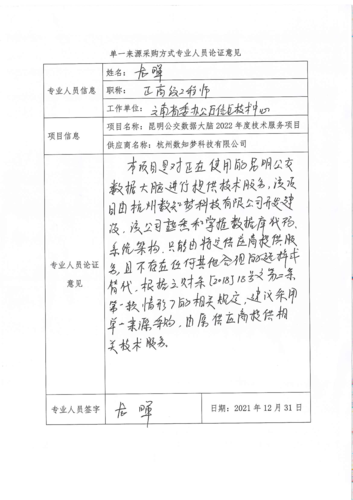 单一来源采购方式专业人员论证意见
专业人员信息
姓名：龙晖
职称：正高级工程师
工作单位：云南省委办公厅信息技术中心
项目信息
项目名称：昆明公交数据大脑 2022 年度技术服务项目
供应商名称：杭州数知梦科技有限公司
专业人员论证
意见
本项目是对正在使用的昆明公交
数据大脑进行提供技术服务，该项
目由杭州数知梦科技有限公司开发建
设，该公司熟悉和掌握数据库代码、
系统架构，只能由特定供应商提供服
务，且不存在任何其他合理的选择或
替代。根据云财采[2018]18号文第二条
第一款情形7的相关规定，建议采用
单一来源采购，由原供应商提供相
关技术服务。
专业人员签字
龙晖
日期：2021 年 12 月 31 日